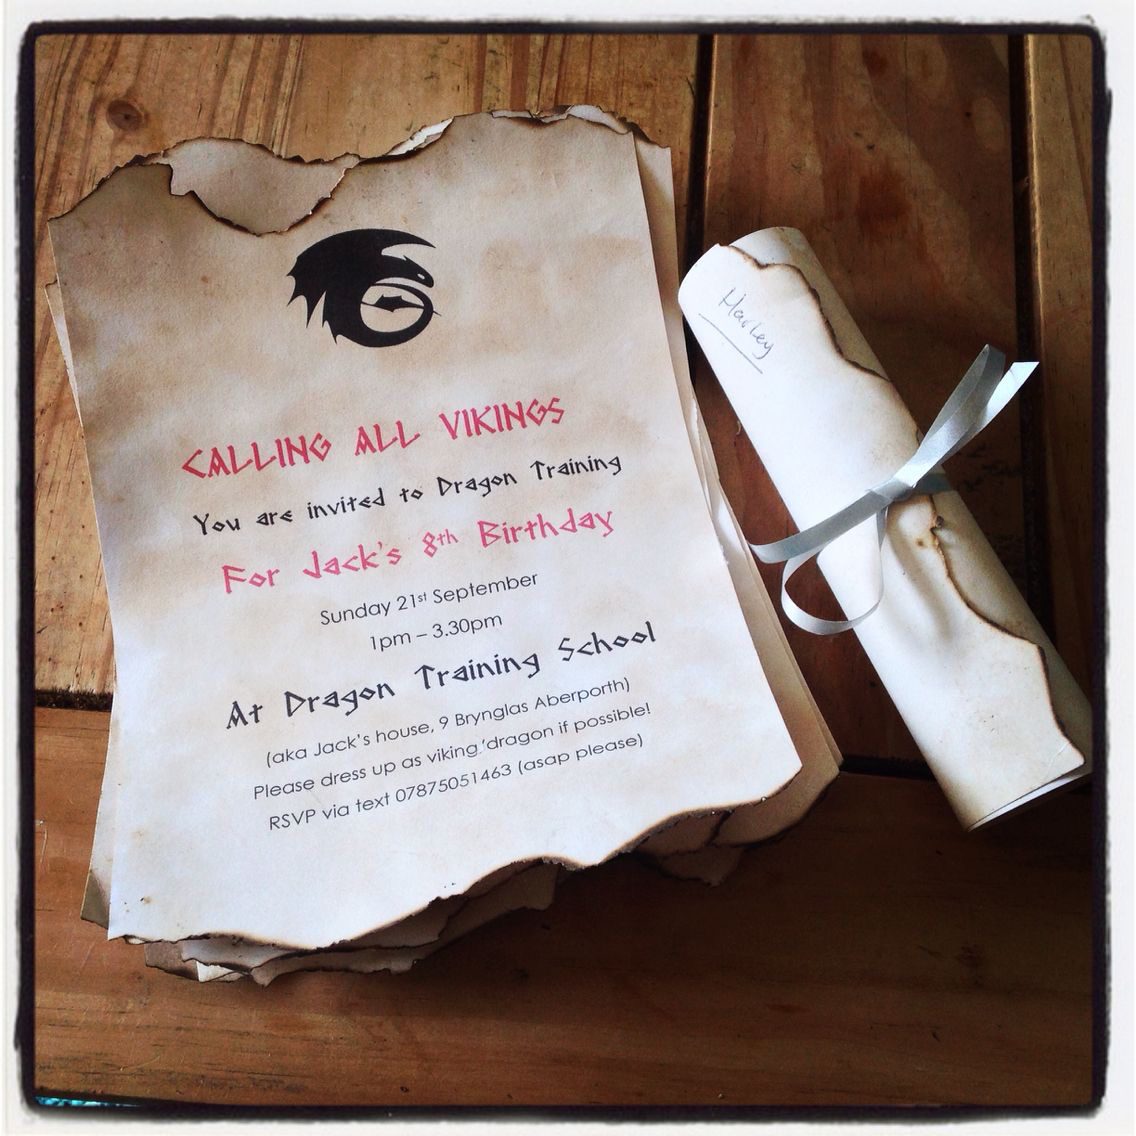 CALLING ALL VIKINGS
You are invited to Dragon Training
For Jack's 8th Birthday
Sunday 21st September
1pm – 3.30pm
At Dragon Training School
(aka Jack's house, 9 Brynglas Aberporth)
Please dress up as viking/dragon if possible!
RSVP via text 07875051463 (asap please)
Harley